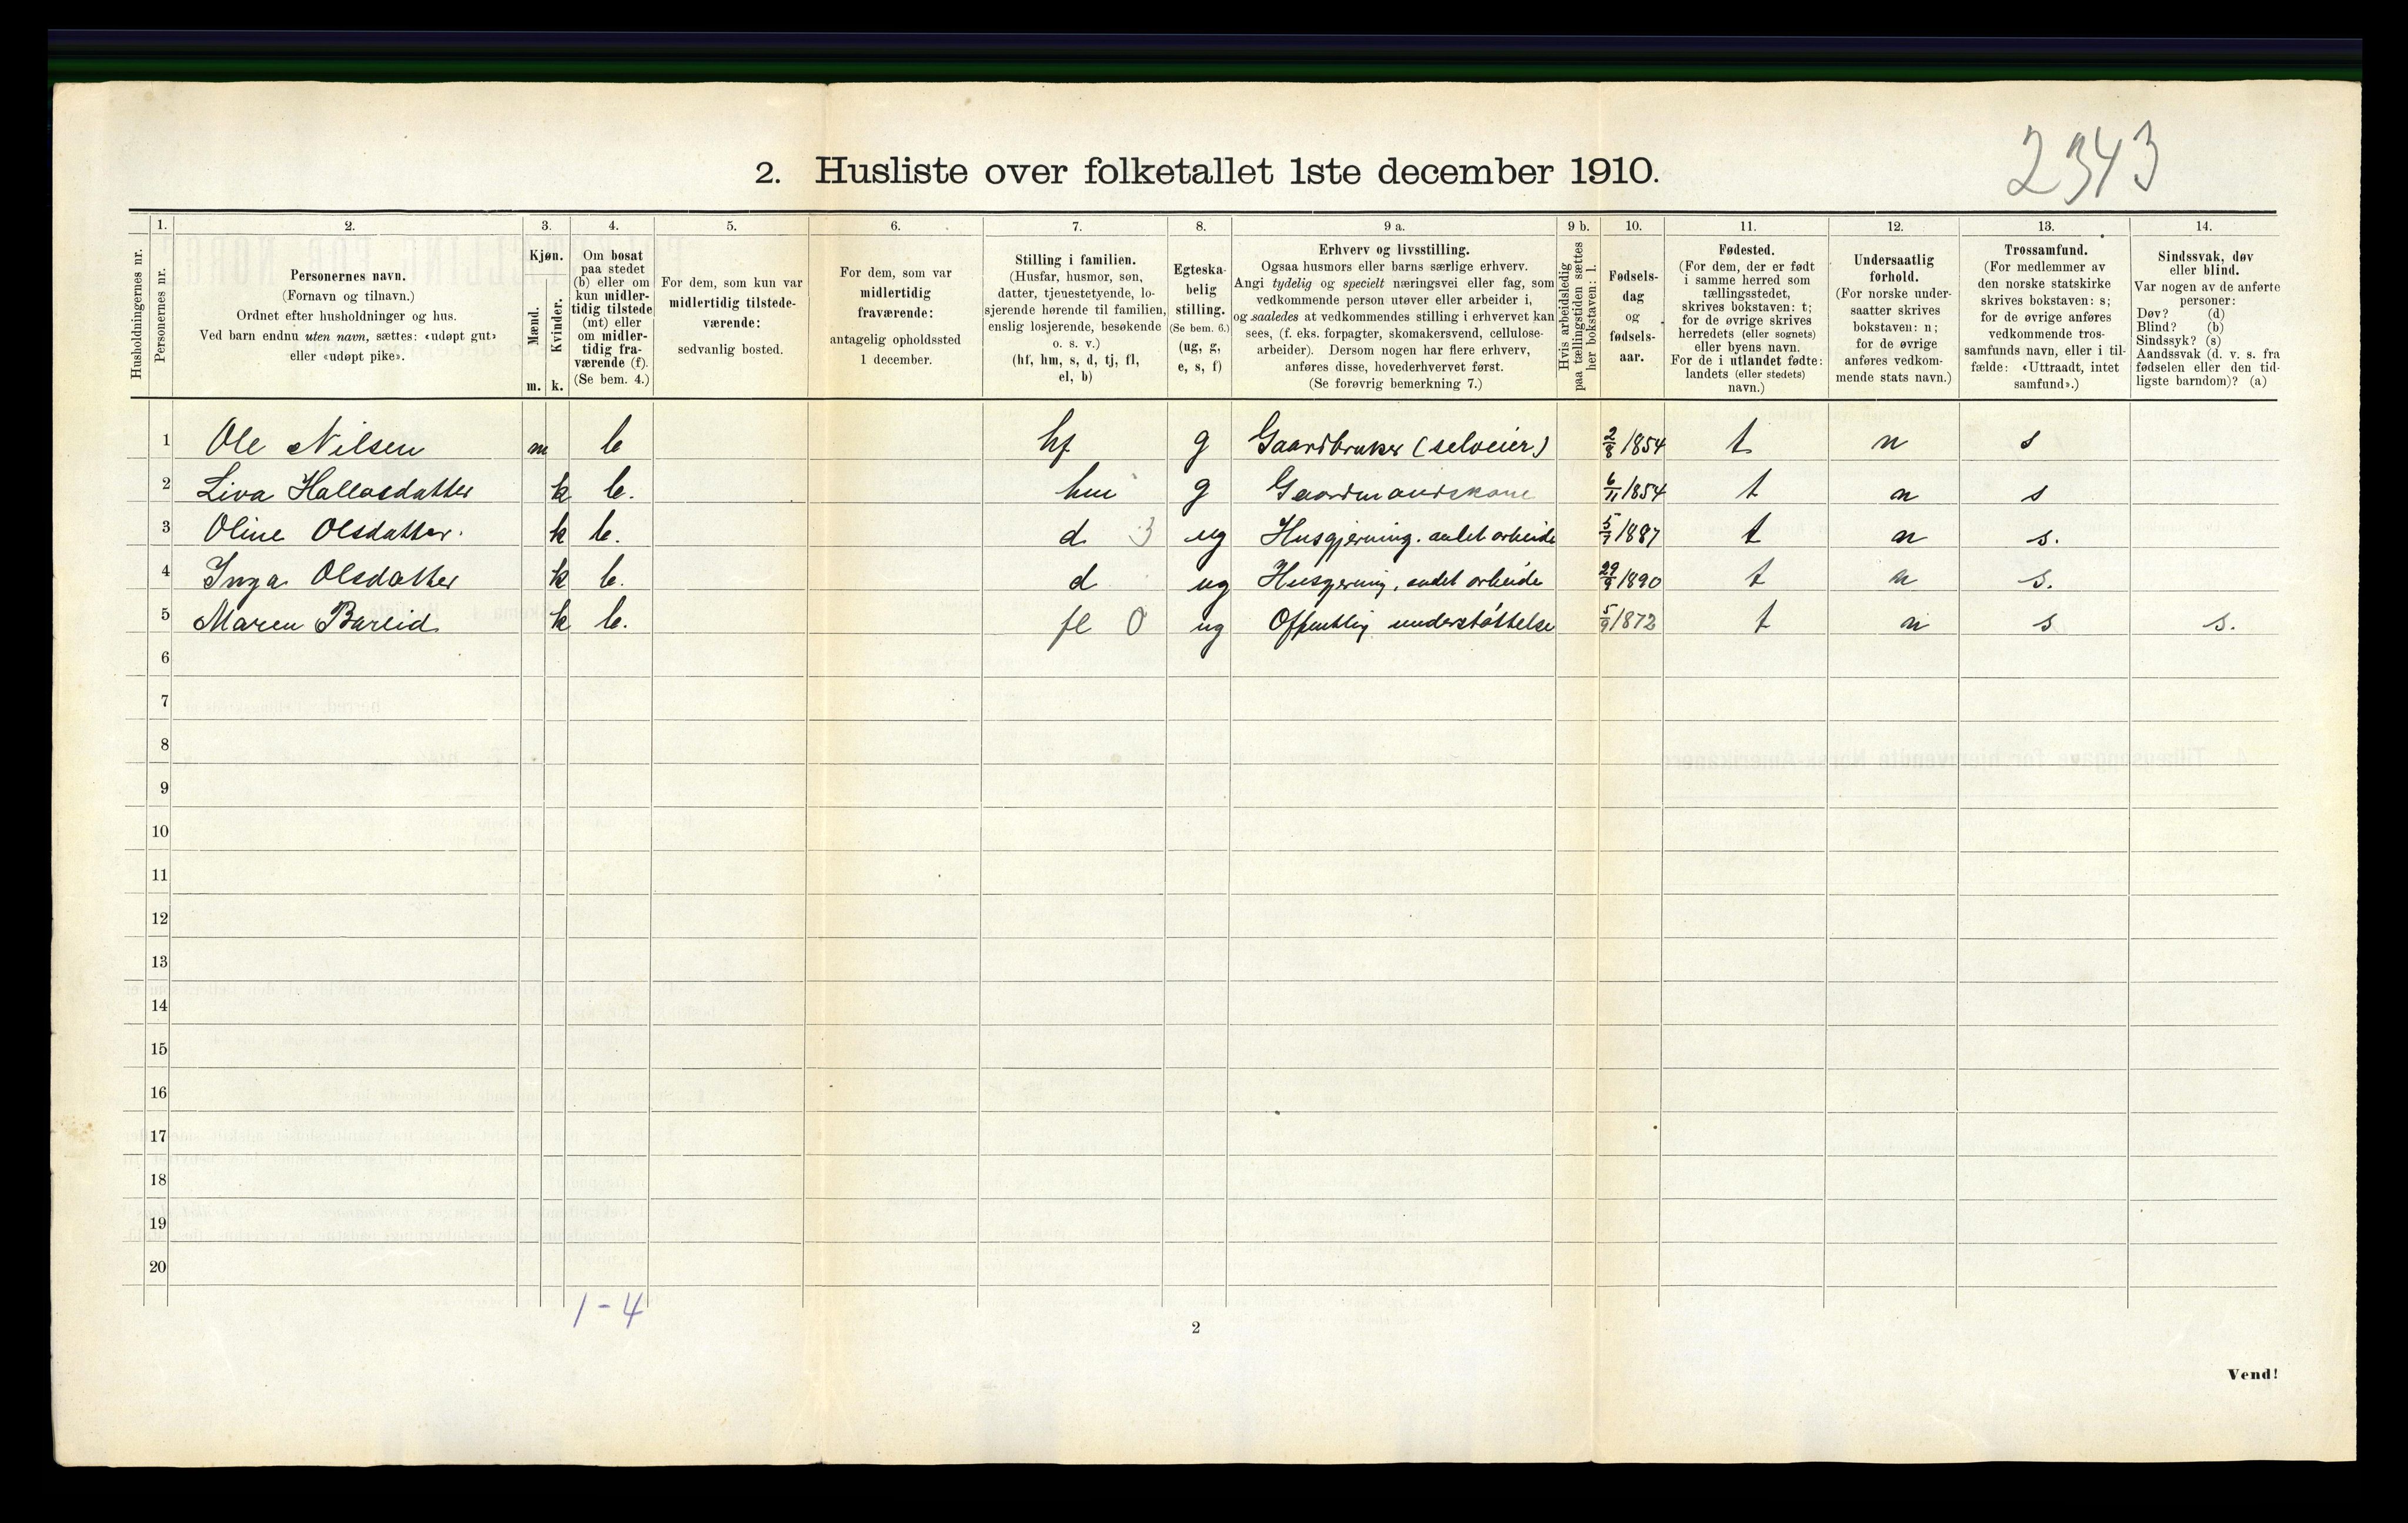 2343
2. Husliste over folketallet 1ste december 1910.
1. 2. 3. 4. 5. 6. 7. 8. 9 a. 9 b. 10. 11. 12. 13. 14.
Husholdningernes nr.
Personernes nr.
Personernes navn.
(Fornavn og tilnavn.)
Ordnet efter husholdninger og hus.
Ved barn endnu uten navn, sættes: «udøpt gut»
eller «udøpt pike».
Kjøn.
Mænd.
Kvinder.
m. k.
Om bosat
paa stedet
(b) eller om
kun midler-
tidig tilstede
(mt) eller
om midler-
tidig fra-
værende (f).
(Se bem. 4.)
For dem, som kun var
midlertidig tilstede-
værende:
sedvanlig bosted.
For dem, som var
midlertidig
fraværende:
antagelig opholdssted
1 december.
Stilling i familien.
(Husfar, husmor, søn,
datter, tjenestetyende, lo-
sjerende hørende til familien,
enslig losjerende, besøkende
o. s. v.)
(hf, hm, s, d, tj, fl,
el, b)
Egteska-
belig
stilling.
(Se bem. 6.)
(ug, g,
e, s, f)
Erhverv og livsstilling.
Ogsaa husmors eller barns særlige erhverv.
Angi tydelig og specielt næringsvei eller fag, som
vedkommende person utøver eller arbeider i,
og saaledes at vedkommendes stilling i erhvervet kan
sees, (f. eks. forpagter, skomakersvend, cellulose-
arbeider). Dersom nogen har flere erhverv,
anføres disse, hovederhvervet først.
(Se forøvrig bemerkning 7.)
Hvis arbeidsledig
paa tællingstiden sættes
her bokstaven: l.
Fødsels-
dag
og
fødsels-
aar.
Fødested.
(For dem, der er født
i samme herred som
tællingsstedet,
skrives bokstaven: t;
for de øvrige skrives
herredets (eller sognets)
eller byens navn.
For de i utlandet fødte:
landets (eller stedets)
navn.)
Undersaatlig
forhold.
(For norske under-
saatter skrives
bokstaven: n;
for de øvrige
anføres vedkom-
mende stats navn.)
Trossamfund.
(For medlemmer av
den norske statskirke
skrives bokstaven: s;
for de øvrige anføres
vedkommende tros-
samfunds navn, eller i til-
fælde: «Uttraadt, intet
samfund».)
Sindssvak, døv
eller blind.
Var nogen av de anførte
personer:
Døv? (d)
Blind? (b)
Sindssyk? (s)
Aandssvak (d. v. s. fra
fødselen eller den tid-
ligste barndom)? (a)
1 Ole Nilsen m b hf g Gaardbruker (selveier) 2/8 1854 t n s
2 Liva Hallosdatter k b. hm g Gaardmandskone 6/11 1854 t n s
3 Oline Olsdatter. k b. d 3 ug Husgjerning. andet arbeide 5/7 1887 t n s.
4 Inga Olsdatter k b. d ug Husgjerning, andet arbeide 29/9 1890 t n s.
5 Maren Bareid k b. fl 0 ug Offentlig understøttelse 5/9 1872 t n s s.
6
7
8
9
10
11
12
13
14
15
16
17
18
19
20
1-4
2
Vend!